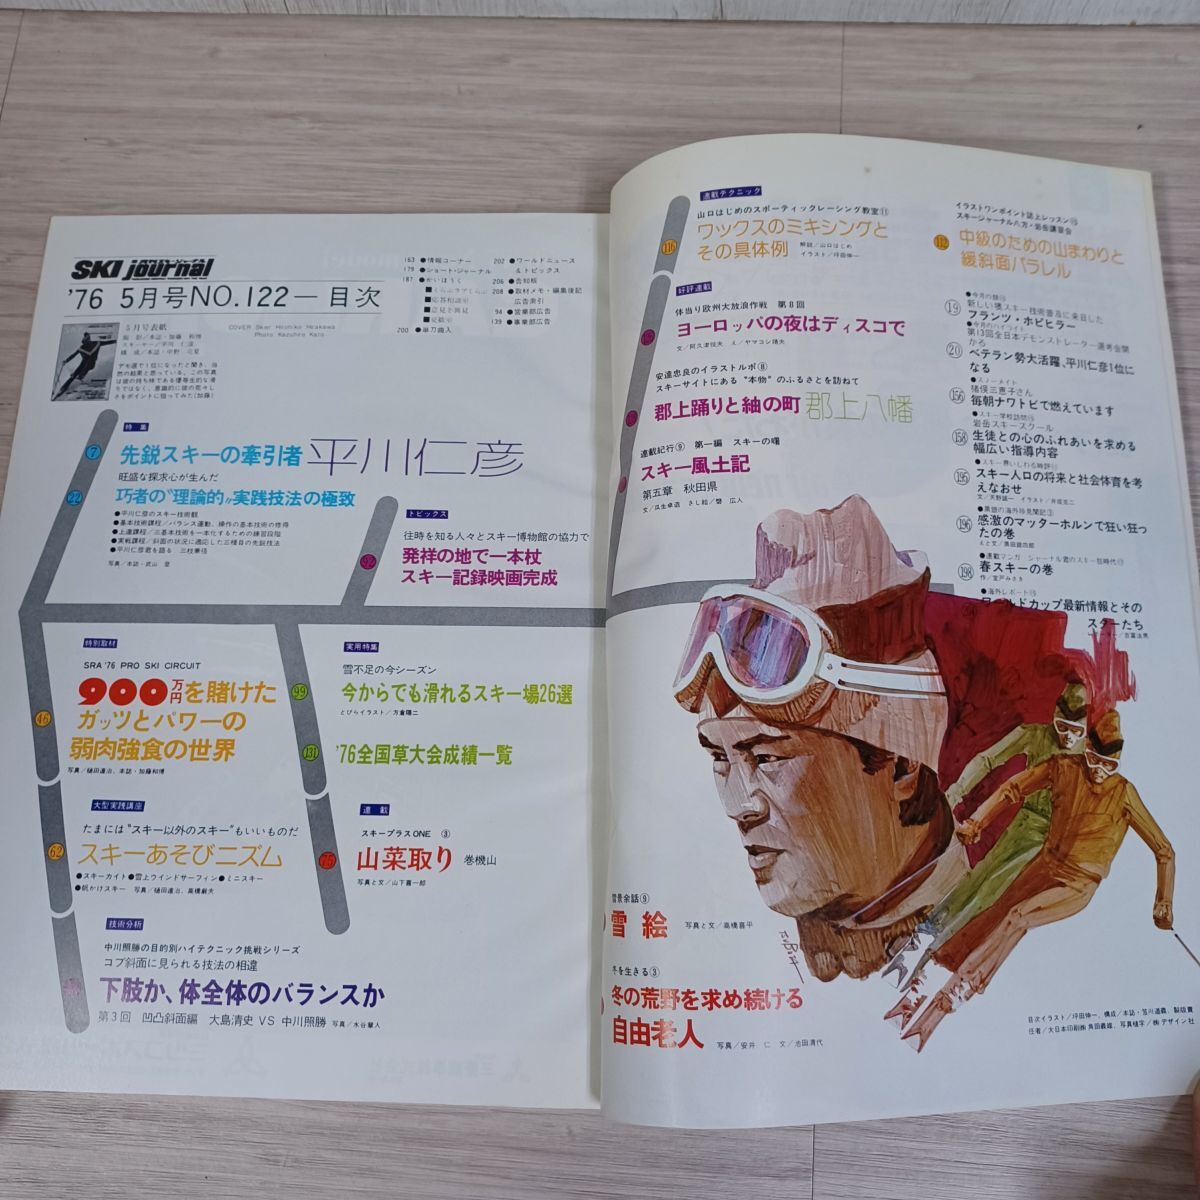 SKI journal
'76 5月号NO.122―目次
163 ●情報コーナー
179 ●ショート・ジャーナル
187 ●かいほうく
200 ●単刀直入
202 ●ワールドニュース
&トピックス
206 ●告知板
208 ●取材メモ・編集後記
広告索引
94 ●営業部広告
139 ●事業部広告
5月号表紙
COVER Skier Hitohiko Hirakawa
Photo Kazuhiro Kato
デモ選で1位になったと聞き、当
然の結果と思っている。この写真
は彼の持ち味である優等生的な滑
りではなく、意識的に彼の荒々し
さをポイントに狙ってみた(加藤)
特集
7
先鋭スキーの牽引者 平川仁彦
旺盛な探求心が生んだ
22
巧者の“理論的”実践技法の極致
●平川仁彦のスキー技術観
●基本技術課程/バランス運動、操作の基本技術の修得
●上達課程/三基本技術を一本化するための練習段階
●実戦課程/斜面の状況に適応した三種目の先鋭技法
●平川仁彦君を語る 三枝兼径
トピックス
往時を知る人々とスキー博物館の協力で
92
発祥の地で一本杖
スキー記録映画完成
特別取材
SRA '76 PRO SKI CIRCUIT
900万円を賭けた
46
ガッツとパワーの
弱肉強食の世界
写真/樋田道治、本誌・加藤和博
実用特集
雪不足の今シーズン
99
今からでも滑れるスキー場26選
とびらイラスト/方倉陽二
131
'76全国草大会成績一覧
大型実践講座
たまには“スキー以外のスキー”もいいものだ
62
スキーあそびニズム
●スキーカイト●雪上ウインドサーフィン●ミニスキー
●帆かけスキー 写真/樋田道治、高橋敏夫
連載
スキープラスONE ③
75
山菜取り 巻機山
写真と文/山下喜一郎
技術分析
中川照勝の目的別ハイテクニック挑戦シリーズ
コブ斜面に見られる技法の相違
下肢か、体全体のバランスか
第3回 凹凸斜面編 大島清史 VS 中川照勝 写真/水谷章人
連載テクニック
山口はじめのスポーティックレーシング教室⑪
116
ワックスのミキシングと
その具体例
解説/山口はじめ
イラスト/坪田伸一
イラストワンポイント誌上レッスン⑮
スキージャーナル八方・岩岳講習会
112
中級のための山まわりと
緩斜面パラレル
好評連載
体当り欧州大放浪作戦 第8回
ヨーロッパの夜はディスコで
文/阿久津悦夫 え/ヤマコシ靖夫
安達忠良のイラストルポ⑧
スキーサイトにある“本物”のふるさとを訪ねて
郡上踊りと紬の町 郡上八幡
連載紀行⑨ 第一編 スキーの曙
スキー風土記
第五章 秋田県
文/瓜生卓造 さし絵/磐 広人
●今月の顔⑲
新しい雪スキー技術普及に来日した
19
フランツ・ホビヒラー
●今月のハイライト
第13回全日本デモンストレーター選考会開
かる
20
ベテラン勢大活躍、平川仁彦1位に
なる
●スノーメイト
猪俣三恵子さん
156
毎朝ナワトビで燃えています
●スキー学校訪問⑮
岩岳スキースクール
158
生徒との心のふれあいを求める
幅広い指導内容
195
スキー人口の将来と社会体育を考
えなおせ
196
感激のマッターホルンで狂い狂っ
たの巻
198
春スキーの巻
作/室戸みさき
●海外レポート⑮
ワールドカップ最新情報とその
スターたち
雪景余話⑨
雪絵
写真と文/高橋喜平
冬を生きる③
冬の荒野を求め続ける
自由老人
写真/安井 仁 文/池田清代
目次イラスト/坪田伸一、構成/本誌・笠川道義、製版責
任者/大日本印刷㈱ 角田義雄、写真植字/㈱デザイン社